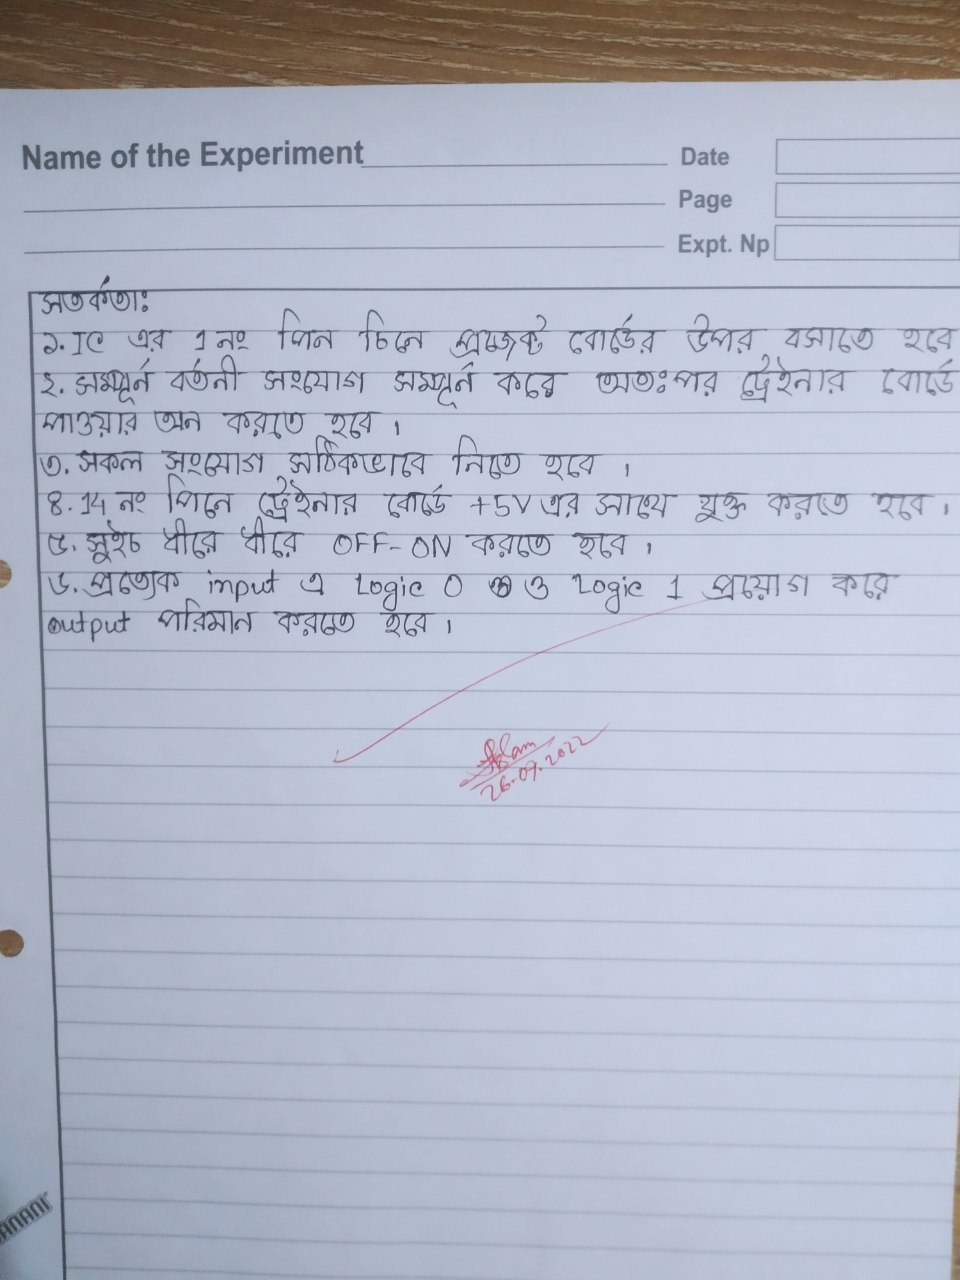 Name of the Experiment
Date
Page
Expt. Np
সতর্কতাঃ
১. IC এর 1 নং পিন চিনে প্রজেক্ট বোর্ডের উপর বসাতে হবে
২. সম্পূর্ন বর্তনী সংযোগ সম্পূর্ন করে অতঃপর ট্রেইনার বোর্ডে
পাওয়ার অন করতে হবে।
৩. সকল সংযোগ সঠিকভাবে নিতে হবে।
৪. 14 নং পিনে ট্রেইনার বোর্ডে +5V এর সাথে যুক্ত করতে হবে।
৫. সুইচ ধীরে ধীরে OFF-ON করতে হবে।
৬. প্রত্যেক input এ Logic 0 ও Logic 1 প্রয়োগ করে
output পরিমান করতে হবে।
26.09.2022